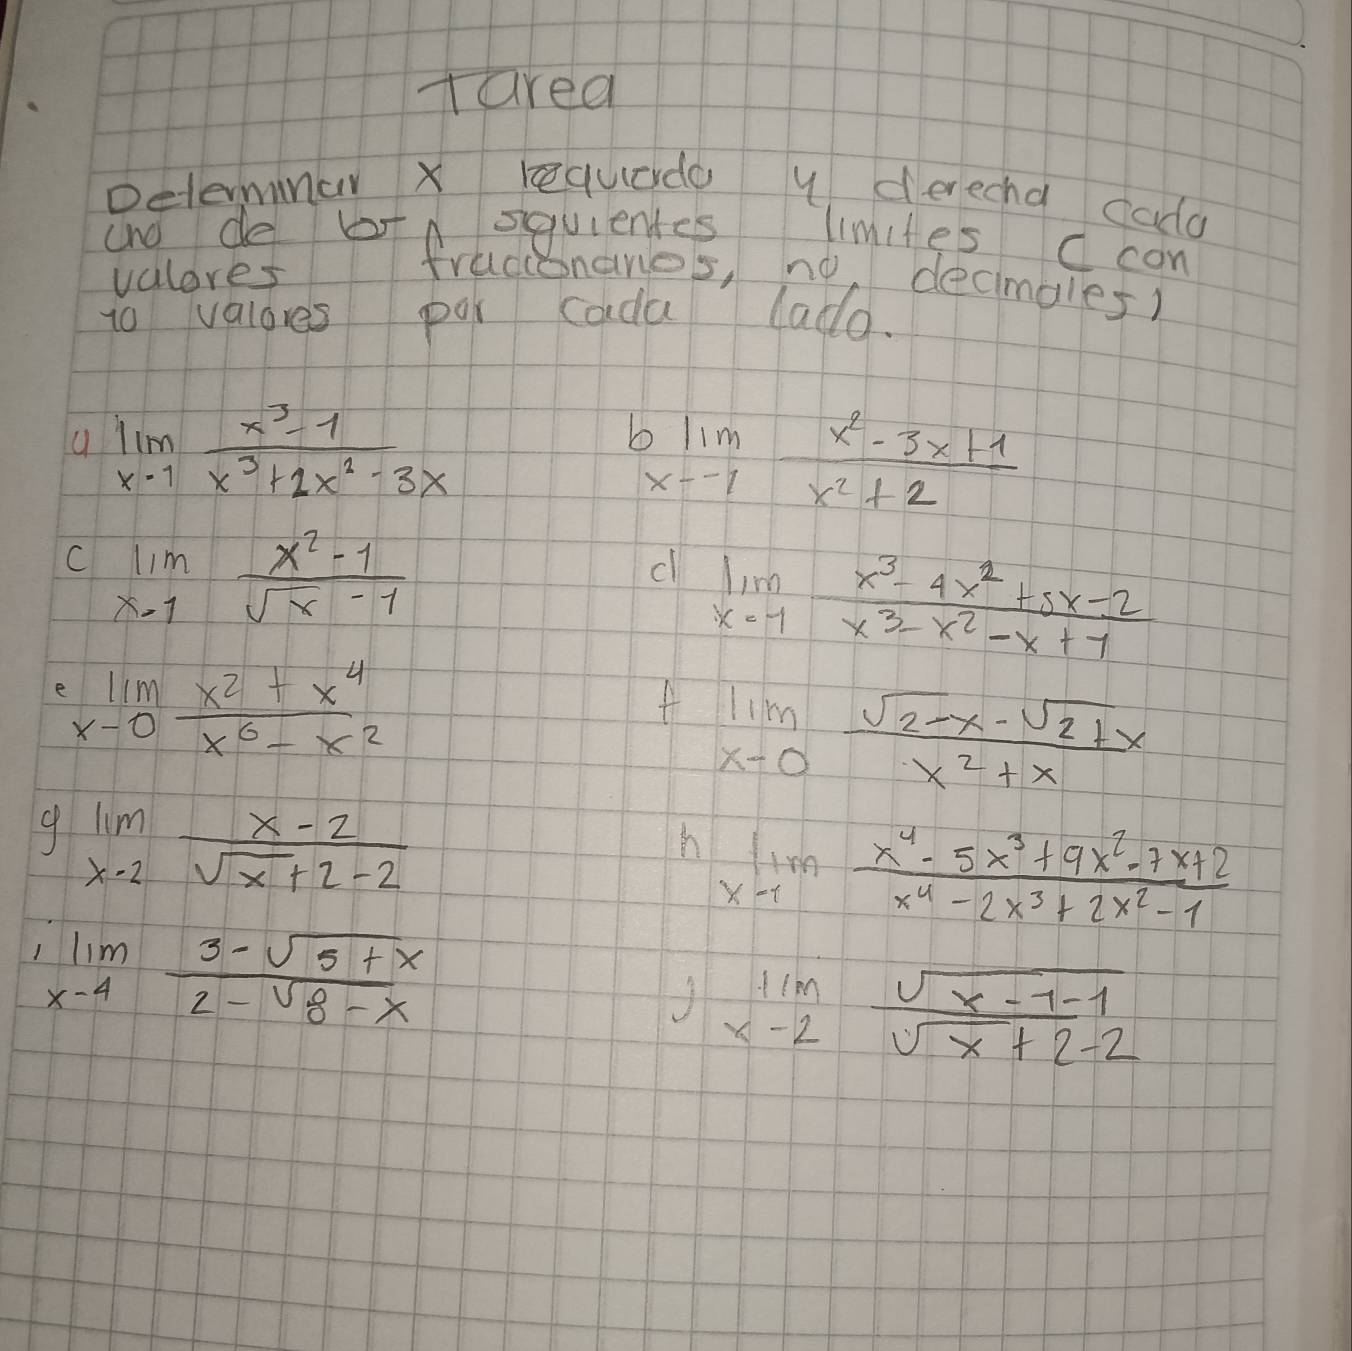 Tarea
Determinar x izquierda y derecha cada
uno de los siguientes limites (con
valores fraccionarios, no decimales)
10 valores por cada lado.
a lim x-1 (x³-1)/(x³+2x²-3x)
b lim x--1 (x²-3x+1)/(x²+2)
c lim x-1 (x²-1)/(√x-1)
d lim x-1 (x³-4x²+5x-2)/(x³-x²-x+1)
e lim x-0 (x²+x⁴)/(x⁶-x²)
f lim x-0 (√2-x-√2+x)/(x²+x)
g lim x-2 (x-2)/(√x+2-2)
h lim x-1 (x⁴-5x³+9x²-7x+2)/(x⁴-2x³+2x²-1)
i lim x-4 (3-√5+x)/(2-√8-x)
j lim x-2 (√x-1-1)/(√x+2-2)